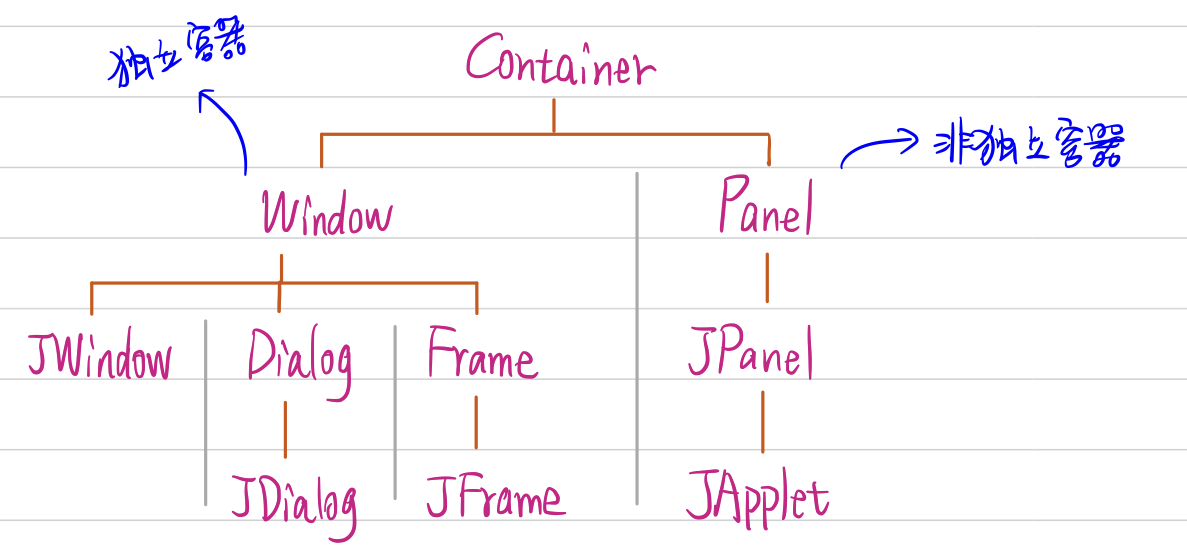 独立容器
Container
非独立容器
Window
Panel
JWindow
Dialog
Frame
JPanel
JDialog
JFrame
JApplet